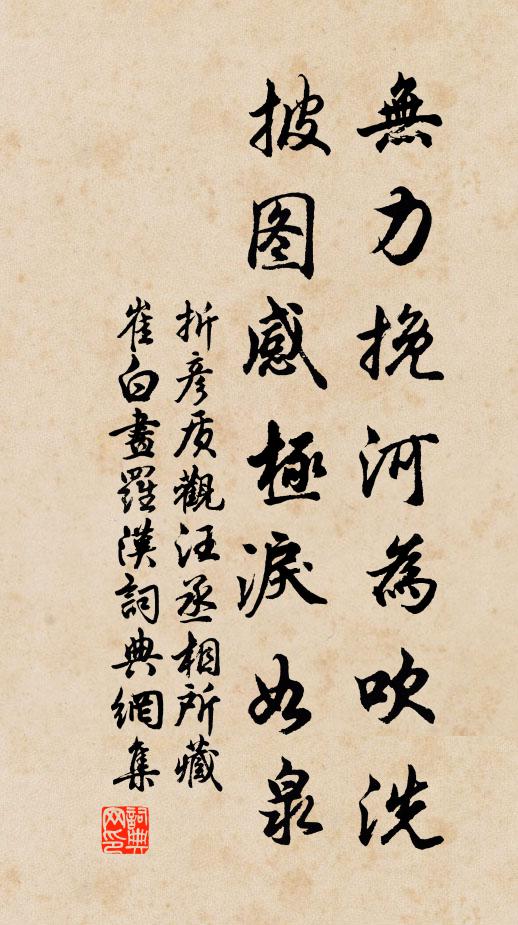 無力挽河為吹洗
披图感極淚如泉
折彦质觀汪丞相所藏
崔白畫羅漢詞典網集
詞典
网印